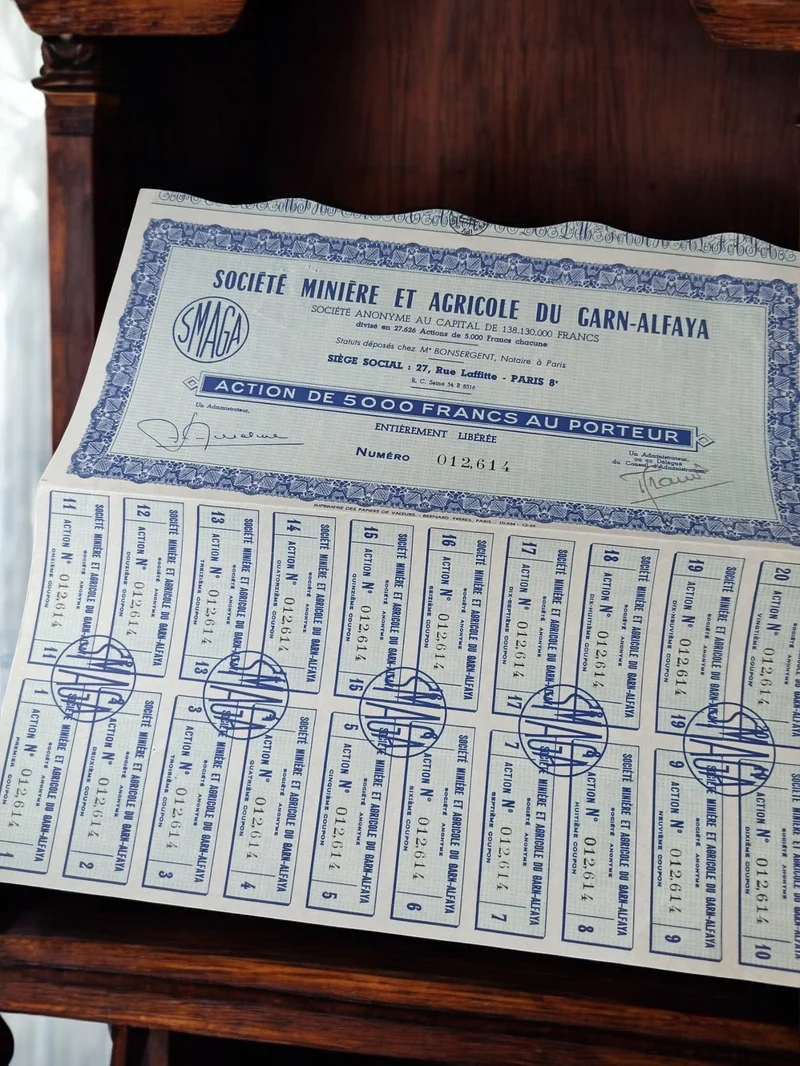 SOCIÉTÉ MINIÈRE ET AGRICOLE DU GARN-ALFAYA
SOCIÉTÉ ANONYME AU CAPITAL DE 138.130.000 FRANCS
divisé en 27.626 Actions de 5.000 Francs chacune
SMAGA
Statuts déposés chez Me BONSERGENT, Notaire à Paris
SIÈGE SOCIAL : 27, Rue Laffitte - PARIS 8e
R. C. Seine 54 B 8516
ACTION DE 5000 FRANCS AU PORTEUR
ENTIÈREMENT LIBÉRÉE
Un Administrateur,
Un Administrateur
ou un Délégué
du Conseil d'Administration
NUMÉRO 012,614
IMPRIMERIE DES PAPIERS DE VALEURS. BERNARD FRÈRES, PARIS.
11
SOCIÉTÉ MINIÈRE ET AGRICOLE DU GARN-ALFAYA
SOCIÉTÉ ANONYME
ACTION N° 012,614
ONZIÈME COUPON
11
12
SOCIÉTÉ MINIÈRE ET AGRICOLE DU GARN-ALFAYA
SOCIÉTÉ ANONYME
ACTION N° 012,614
DOUZIÈME COUPON
13
SOCIÉTÉ MINIÈRE ET AGRICOLE DU GARN-ALFAYA
SOCIÉTÉ ANONYME
ACTION N° 012,614
TREIZIÈME COUPON
13
14
SOCIÉTÉ MINIÈRE ET AGRICOLE DU GARN-ALFAYA
SOCIÉTÉ ANONYME
ACTION N° 012,614
QUATORZIÈME COUPON
15
SOCIÉTÉ MINIÈRE ET AGRICOLE DU GARN-ALFAYA
SOCIÉTÉ ANONYME
ACTION N° 012,614
QUINZIÈME COUPON
15
16
SOCIÉTÉ MINIÈRE ET AGRICOLE DU GARN-ALFAYA
SOCIÉTÉ ANONYME
ACTION N° 012,614
SEIZIÈME COUPON
17
SOCIÉTÉ MINIÈRE ET AGRICOLE DU GARN-ALFAYA
SOCIÉTÉ ANONYME
ACTION N° 012,614
DIX-SEPTIÈME COUPON
17
18
SOCIÉTÉ MINIÈRE ET AGRICOLE DU GARN-ALFAYA
SOCIÉTÉ ANONYME
ACTION N° 012,614
DIX-HUITIÈME COUPON
19
SOCIÉTÉ MINIÈRE ET AGRICOLE DU GARN-ALFAYA
SOCIÉTÉ ANONYME
ACTION N° 012,614
DIX-NEUVIÈME COUPON
19
20
SOCIÉTÉ ANONYME
ACTION N° 012,614
VINGTIÈME COUPON
SMAGA
SMAGA
SMAGA
SMAGA
SMAGA
1
SOCIÉTÉ MINIÈRE ET AGRICOLE DU GARN-ALFAYA
SOCIÉTÉ ANONYME
ACTION N° 012,614
PREMIER COUPON
1
SOCIÉTÉ MINIÈRE ET AGRICOLE DU GARN-ALFAYA
SOCIÉTÉ ANONYME
ACTION N° 012,614
DEUXIÈME COUPON
2
3
SOCIÉTÉ MINIÈRE ET AGRICOLE DU GARN-ALFAYA
SOCIÉTÉ ANONYME
ACTION N° 012,614
TROISIÈME COUPON
3
SOCIÉTÉ MINIÈRE ET AGRICOLE DU GARN-ALFAYA
SOCIÉTÉ ANONYME
ACTION N° 012,614
QUATRIÈME COUPON
4
5
SOCIÉTÉ MINIÈRE ET AGRICOLE DU GARN-ALFAYA
SOCIÉTÉ ANONYME
ACTION N° 012,614
CINQUIÈME COUPON
5
SOCIÉTÉ MINIÈRE ET AGRICOLE DU GARN-ALFAYA
SOCIÉTÉ ANONYME
ACTION N° 012,614
SIXIÈME COUPON
6
7
SOCIÉTÉ MINIÈRE ET AGRICOLE DU GARN-ALFAYA
SOCIÉTÉ ANONYME
ACTION N° 012,614
SEPTIÈME COUPON
7
SOCIÉTÉ MINIÈRE ET AGRICOLE DU GARN-ALFAYA
SOCIÉTÉ ANONYME
ACTION N° 012,614
HUITIÈME COUPON
8
9
SOCIÉTÉ MINIÈRE ET AGRICOLE DU GARN-ALFAYA
SOCIÉTÉ ANONYME
ACTION N° 012,614
NEUVIÈME COUPON
9
SOCIÉTÉ ANONYME
ACTION N° 012,614
DIXIÈME COUPON
10